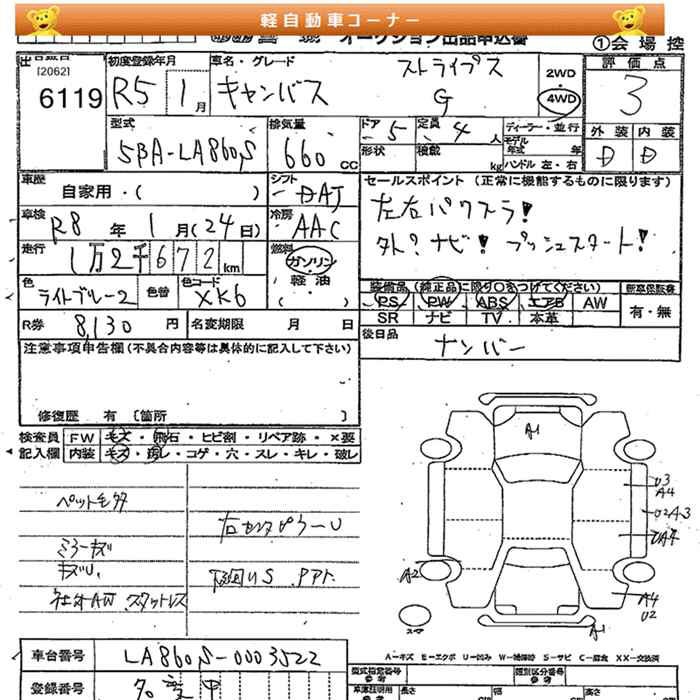 軽自動車コーナー
オークション出品申込書
①会場控
[2062]
6119
初度登録年月
R5 1月
車名・グレード
ストライプス
キャンバス G
2WD
4WD
評価点
3
外装 内装
D D
型式
5BA-LA860S
排気量
660 cc
ドア 5
定員 4 人
形状
積載 kg
ディーラー・並行
モデル年式 年
ハンドル 左・右
車歴
自家用・( )
シフト
冷房
AAC
車検
R8年1月(24日)
走行
1万2千672km
燃料
ガソリン
軽油
( )
色
ライトブルー2
色替
色コード
XK6
R券 8,130円
名変期限 月 日
セールスポイント(正常に機能するものに限ります)
左右パワスラ!
ナビ! プッシュスタート!
装備品(純正品に限り○をつけてください)
PS PW ABS エアB AW
SR ナビ TV 本革
新車保証書
有・無
後日品
ナンバー
注意事項申告欄(不具合内容等は具体的に記入して下さい)
修復歴 有〔箇所 〕
検査員記入欄
FW キズ・飛石・ヒビ割・リペア跡・×要
内装 キズ・汚レ・コゲ・穴・スレ・キレ・破レ
ミラーキズ
キズU
社外AW スタットレス
右センタピラーU
下回りS
A1
U3
A4
U2 A3
A2
A4
U2
A1
スペア
A-キズ E-エクボ U-凹み W-補修跡 S-サビ C-腐食 XX-交換済
車台番号
LA860S-0003522
登録番号
型式指定番号
参考
類別区分番号
参考
長さ
幅
高さ